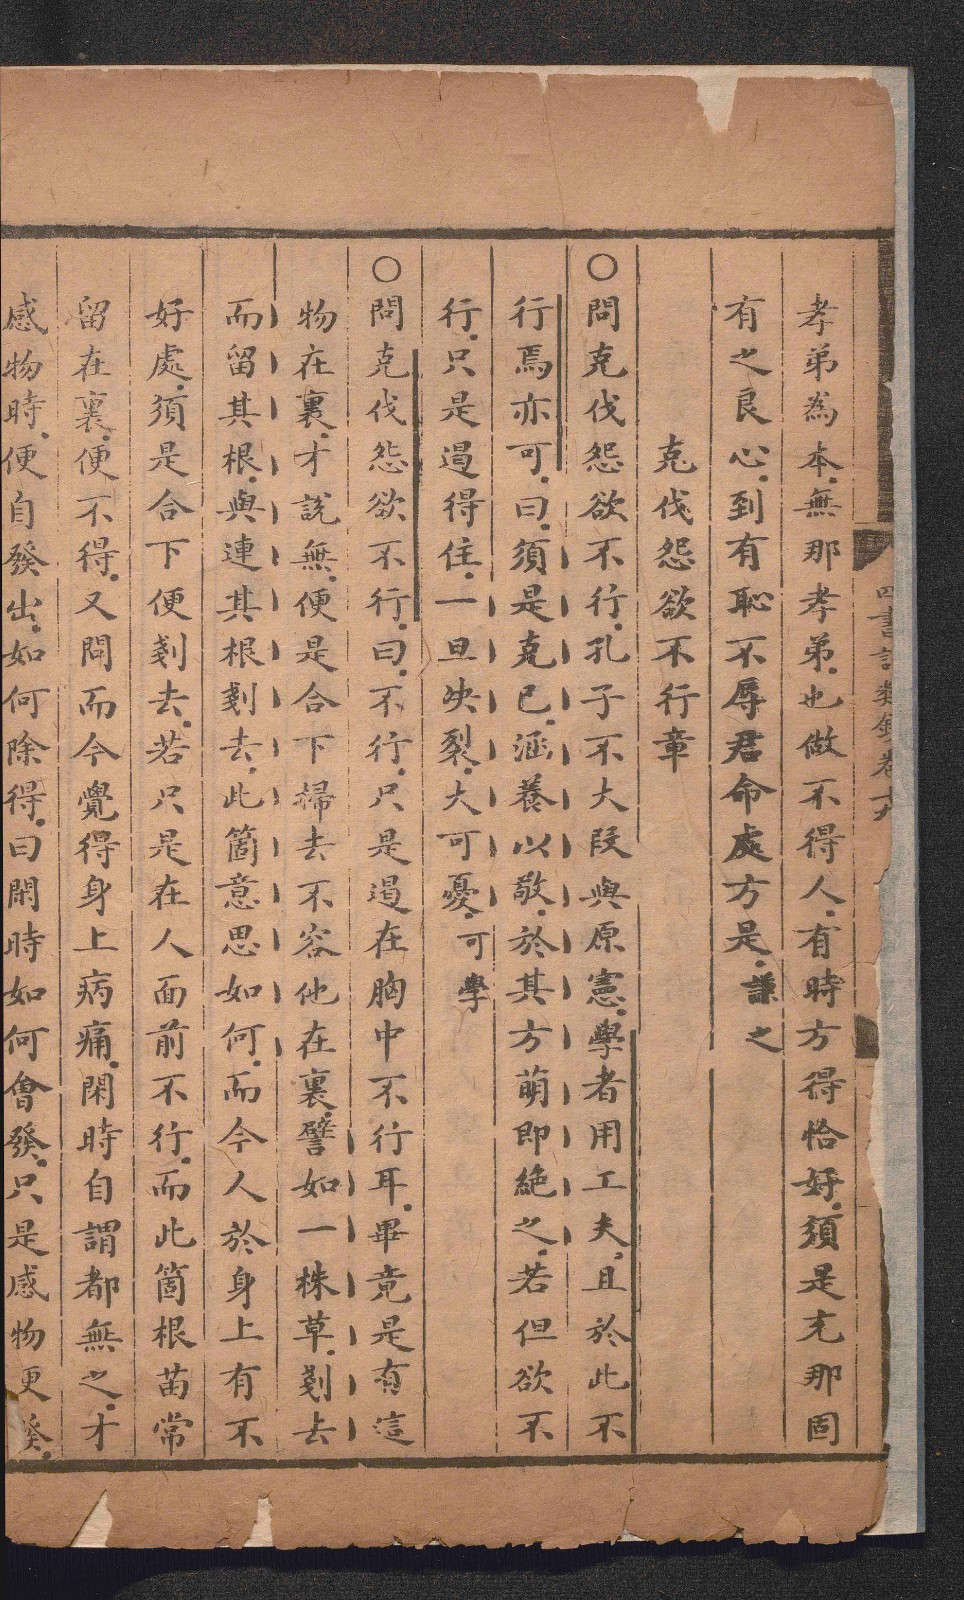 孝弟為本無那孝弟也做不得人有時方得恰好須是充那固
有之良心到有恥不辱君命處方是謙之
克伐怨欲不行章
○問克伐怨欲不行孔子不大段與原憲學者用工夫且於此不
行焉亦可曰須是克己涵養以敬於其方萌即絕之若但欲不
行只是遏得住一旦决裂大可憂可學
○問克伐怨欲不行曰不行只是遏在胸中不行耳畢竟是有這
物在裏才說無便是合下掃去不容他在裏譬如一株草剗去
而留其根與連其根剗去此箇意思如何而今人於身上有不
好處須是合下便剗去若只是在人面前不行而此箇根苗常
留在裏便不得又問而今覺得身上病痛閑時自謂都無之才
感物時便自發出如何除得曰閑時如何會發只是感物便發
四書語類鈔卷十九